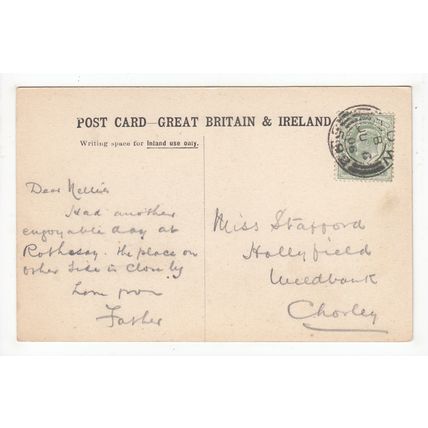 POST CARD—GREAT BRITAIN & IRELAND
Writing space for Inland use only.
Dear Nellie
Had another
enjoyable day at
Rothesay. The place on
other side is close by
Love from
Father
Miss Stafford
Hollyfield
Weldbank
Chorley